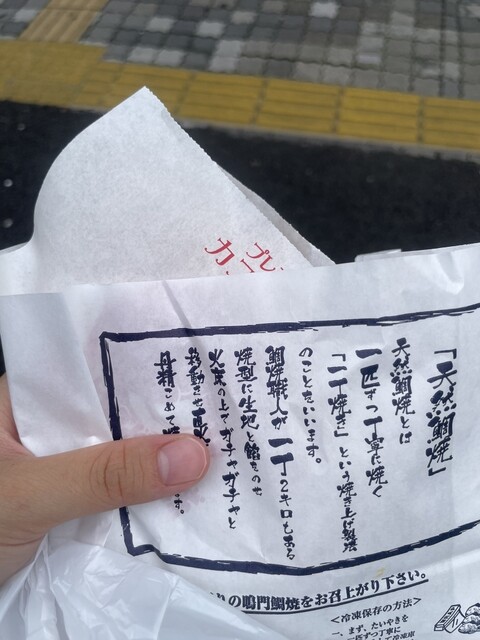 プレ
カ
「天然鯛焼」
天然鯛焼とは
一匹ずつ丁寧に焼く
「一丁焼き」という焼き上げ製法
のことをいいます。
鯛焼職人が一丁2キロもある
焼型に生地と餡をのせ
火床の上でガチャガチャと
移動させ
丹精こめて
す。
の鳴門鯛焼をお召上がり下さい。
<冷凍保存の方法>
一、まず、たいやきを
一匹ずつ丁寧に